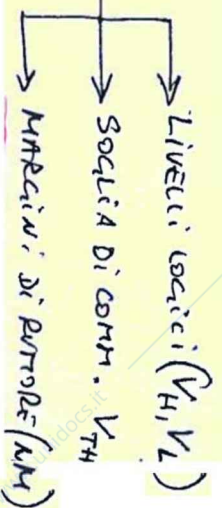 LIVELLI LOGICI (V_H, V_L)
SOGLIA DI COMM. V_TH
MARGINI DI RUMORE (NM)